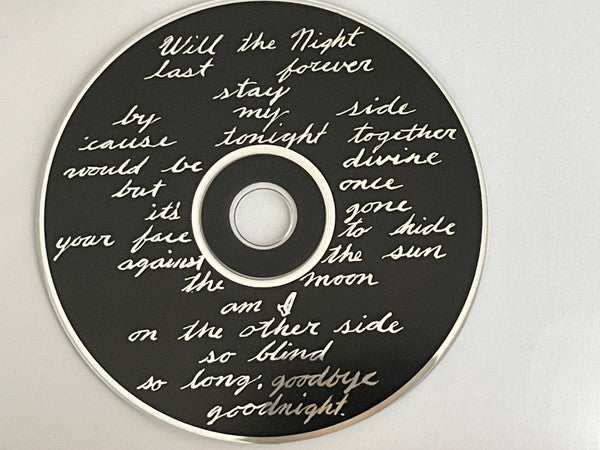 Will the Night
last forever
stay
by my side
'cause tonight together
would be divine
but once
it's gone
your face to hide
against the sun
the moon
am I
on the other side
so blind
so long, goodbye
goodnight.